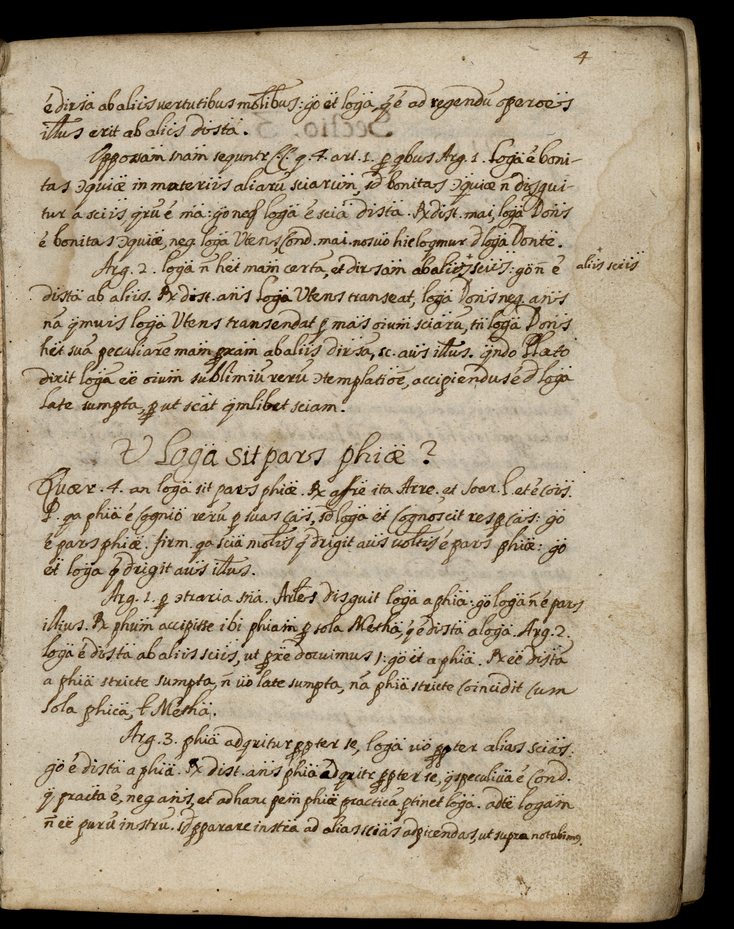 4
é dirsa ab aliis vertutibus mōlibus: g̈o ët loga, q̈ é ad regendū operoës
illus erit ab aliis dista.
Opposam snam sequntr q. 4. art. 1. p̱ qbus Arg. 1. Loga é boni-
tas ɔquiæ in materiis aliarū sciarum, sd bonitas ɔquiæ n̄ disqui-
tur a sciis qrū é m̄a: g̈o neq loga é scia dista. Rx dist. mai, loga Dons
é bonitas ɔquiæ, neg. loga Vtens, Cond. mai. nos uō hic loqmur d loga Donte.
Arg. 2. loga n̄ hët mam certa, et dirsam ab aliis sciis: g̈o n̄ é
aliis sciis
dista ab aliis. Rx dist. ans loga Vtens transeat, loga Dons neg. ans
nā q̈muis loga Vtens transendat p mas oium sciarū, tn̄ loga Dons
hët suā peculiare mam p̱xam ab aliis dirsa, sc. aüs illus. q̈ndo Plato
dixit loga eë oium sublimiū rerū ɔtemplatioē, accipiendus é d loga
late sumpta, p̱ ut scāt q̈mlibet sciam.
V Loga sit pars phiæ?
Quær. 4. an loga sit pars phiæ. Rx affre ita Arre. et Soar. l. et é cöis.
P. qa phia é cognio rerū p suas cas, sd loga ët Cognoscit res p cas: g̈o
é pars phiæ. firm. qa scia molis q̈ drigit aüs uoltis é pars phiæ: g̈o
ët loga q̈ drigit aüs illus.
Arg. 1. p̱ ɔtraria sna. Arles disguit loga a phia: g̈o loga n̄ é pars
illius. Rx phum accipisse ibi phiam p̱ sola Metha, q̈ é dista a loga. Arg. 2.
loga é dista ab aliis sciis, ut p̱xe docuimus 1: g̈o ët a phia. Rx eë dista
a phia stricte sumpta, n̄ uō late sumpta, nā phia stricte Coincidit cum
sola phica, l Metha.
Arg. 3. phia adqritur p̱pter se, loga uō p̱pter alias scias.
g̈o é dista a phia. Rx dist. ans phia adqritr p̱pter se, q̈ speculiua é Cond.
q̈ practa é, neg ans, et ad hanc pem phiæ practica ptinet loga. adte logam
n̄ eë purū instrū. sd p̱parare instra ad alias scias adpicendas, ut supra notabims.